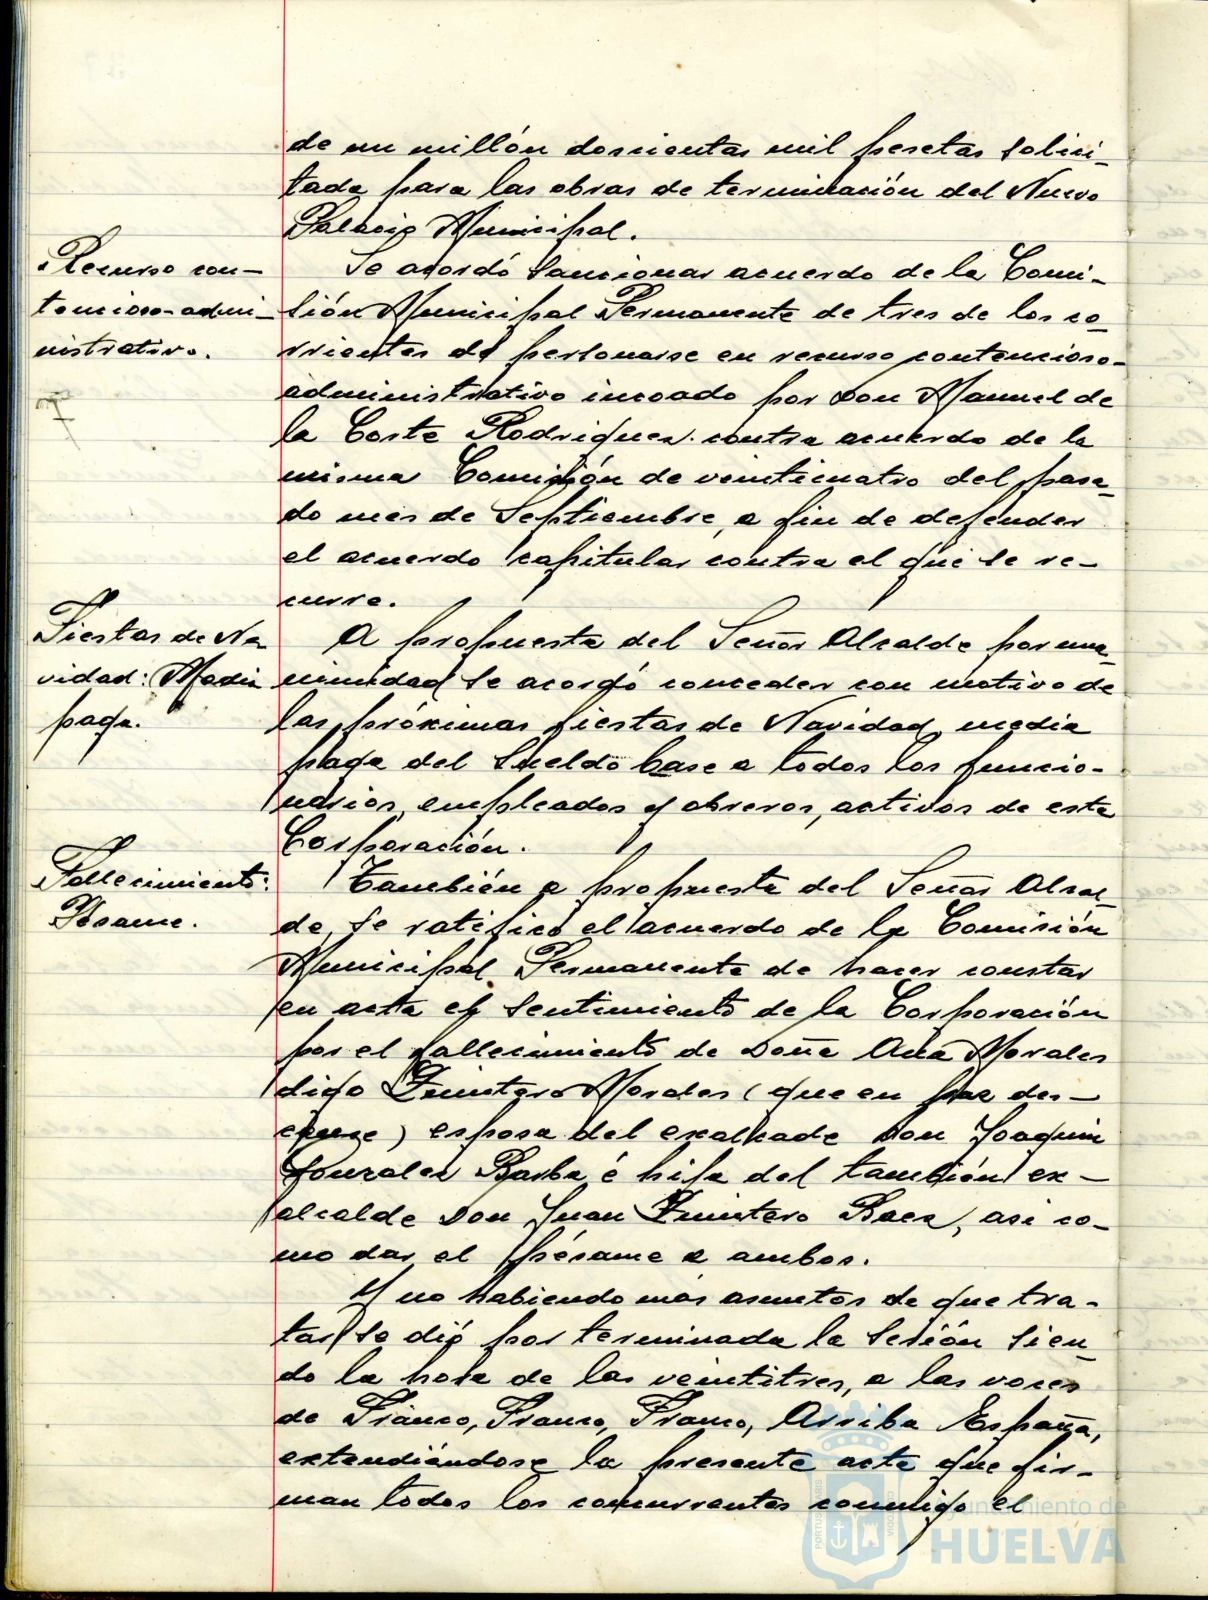 de un millón doscientas mil pesetas solici-
tada para las obras de terminación del Nuevo
Palacio Municipal.
Recurso con-
tencioso-admi-
nistrativo.
Se acordó sancionar acuerdo de la Comi-
sión Municipal Permanente de tres de los co-
rrientes de personarse en recurso contencioso-
administrativo incoado por Don Manuel de
la Corte Rodriguez contra acuerdo de la
misma Comisión de veinticuatro del pasa-
do mes de Septiembre, a fin de defender
el acuerdo capitular contra el que se re-
curre.
Fiestas de Na-
vidad: Media
paga.
A propuesta del Señor Alcalde por una-
nimidad se acordó conceder con motivo de
las próximas fiestas de Navidad, media
paga del sueldo base a todos los funcio-
narios, empleados y obreros, activos de esta
Corporación.
Fallecimiento:
Pesame.
También a propuesta del Señor Alcal-
de, se ratificó el acuerdo de la Comisión
Municipal Permanente de hacer constar
en acta el sentimiento de la Corporación
por el fallecimiento de Doña Ana Morales
digo Quintero Morales (que en paz des-
canse) esposa del exalcalde Don Joaquin
Gonzalez Barba é hija del también ex-
alcalde Don Juan Quintero Baez, asi co-
mo dar el pésame a ambos.
Y no habiendo mas asuntos de que tra-
tar se dió por terminada la Sesión sien-
do la hora de las veintitres, a las voces
de Franco, Franco, Franco, Arriba España,
extendiéndose la presente acta que fir-
man todos los concurrentes conmigo el
Ayuntamiento de
HUELVA